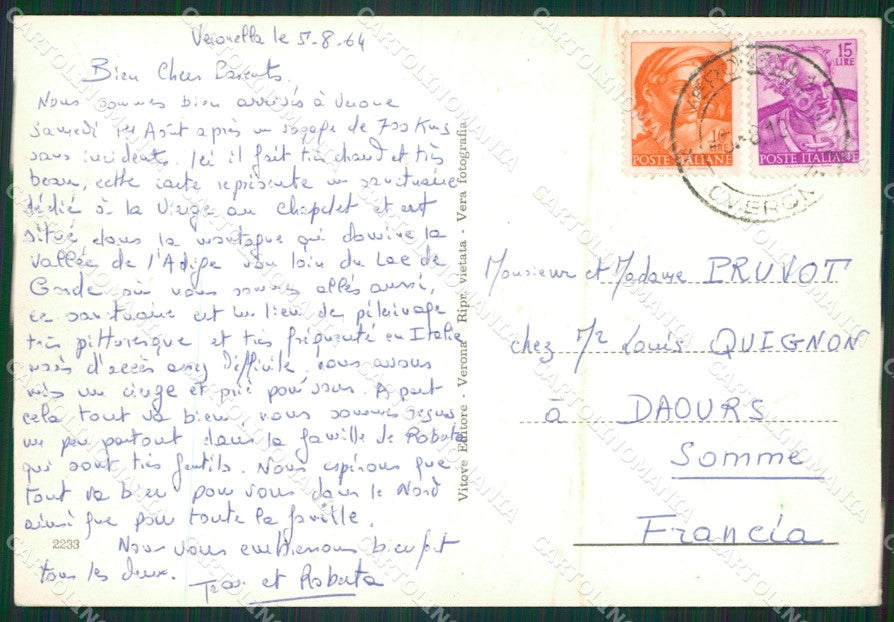 Veronella le 5-8-64
Bien Chers Parents.
Nous sommes bien arrivés à
samedi 1er Août après un voyage de 700 Kms
sans incidents. Ici il fait très chaud et très
beau, cette carte représente un sanctuaire
dédié à la Vierge au Chapelet et est
situé dans la montagne qui domine la
Vallée de l'Adige non loin du Lac de
Garde où nous sommes allés aussi,
ce sanctuaire est un lieu de pèlerinage
très pittoresque et très fréquenté en Italie
mais d'accès assez difficile, nous avons
mis un cierge et prié pour vous. A part
cela tout va bien, nous sommes reçus
un peu partout dans la famille de Roberta
qui sont très gentils. Nous espérons que
tout va bien pour vous dans le Nord
ainsi que pour toute la famille.
Nous vous embrassons bien fort
tous les deux.
et Roberta
2233
Vitove Editore - Verona - Ripr. vietata - Vera fotografia
POSTE ITALIANE
15 LIRE
POSTE ITALIANE
Monsieur et Madame PRUVOT
chez Mr Louis QUIGNON
à DAOURS
Somme
Francia
CARTOLINOMANIA